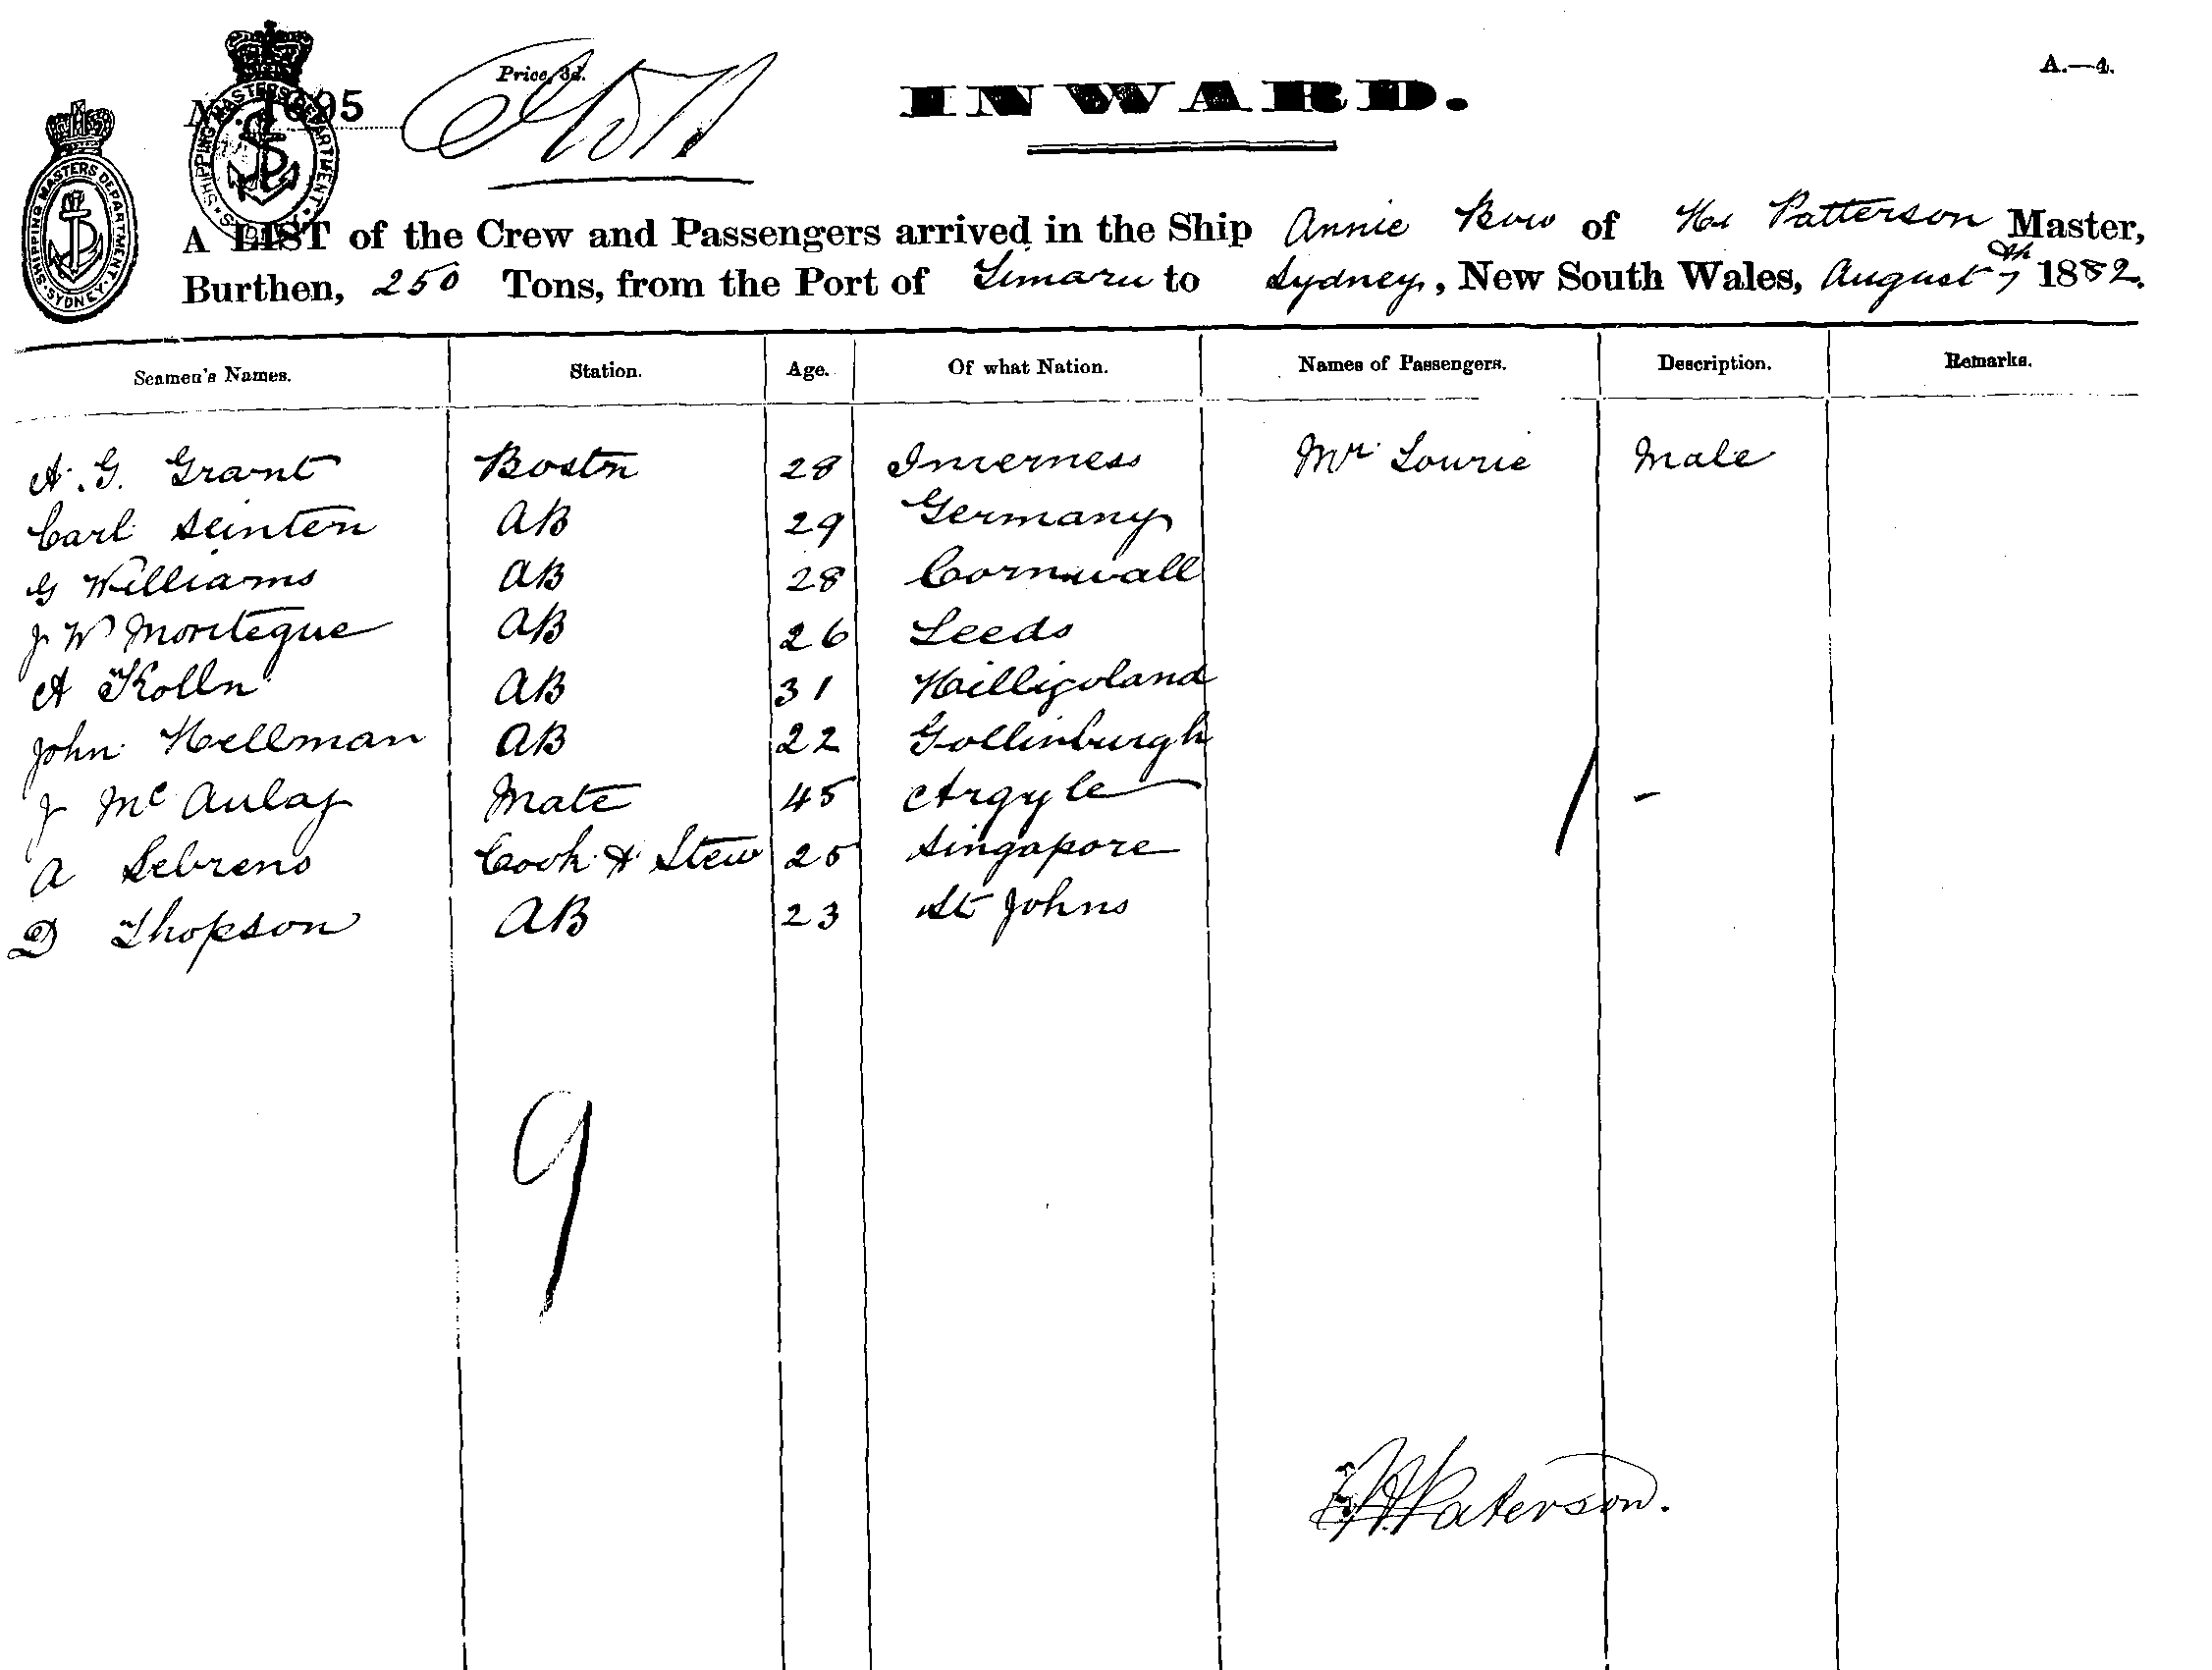 Price, 3d.
INWARD.
A.—4.
SHIPPING MASTERS DEPARTMENT
SYDNEY
A LIST of the Crew and Passengers arrived in the Ship Annie Bow of Patterson Master,
Burthen, 250 Tons, from the Port of Timaru to Sydney, New South Wales, August 7th 1882.
Seamen's Names. Station. Age. Of what Nation. Names of Passengers. Description. Remarks.
A. G. Grant Bostn 28 Inverness Mr Lowrie Male
Carl 29 AB Germany
G Williams AB 28 Cornwall
J W Montegue AB 26 Leeds
A Kolln AB 31 Hilligoland
John Hellman AB 22 Gollinburgh
J McAulay Mate 45 Argyle 1 -
A Sebreno Cook & Stew 25 Singapore
D Thopson AB 23 St Johns
9
Paterson.